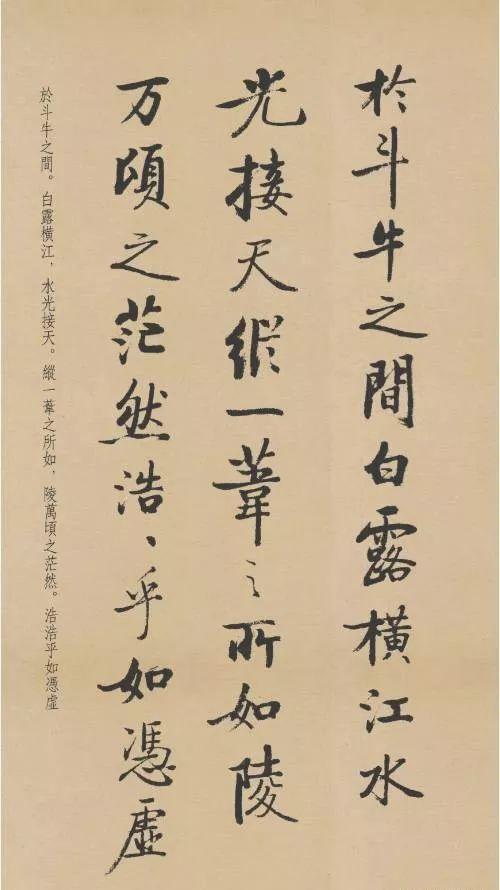 於斗牛之間白露横江水
光接天縦一葦之所如陵
万頃之茫然浩〻乎如馮虚
於斗牛之間。白露橫江，水光接天。縱一葦之所如，陵萬頃之茫然。浩浩乎如憑虛